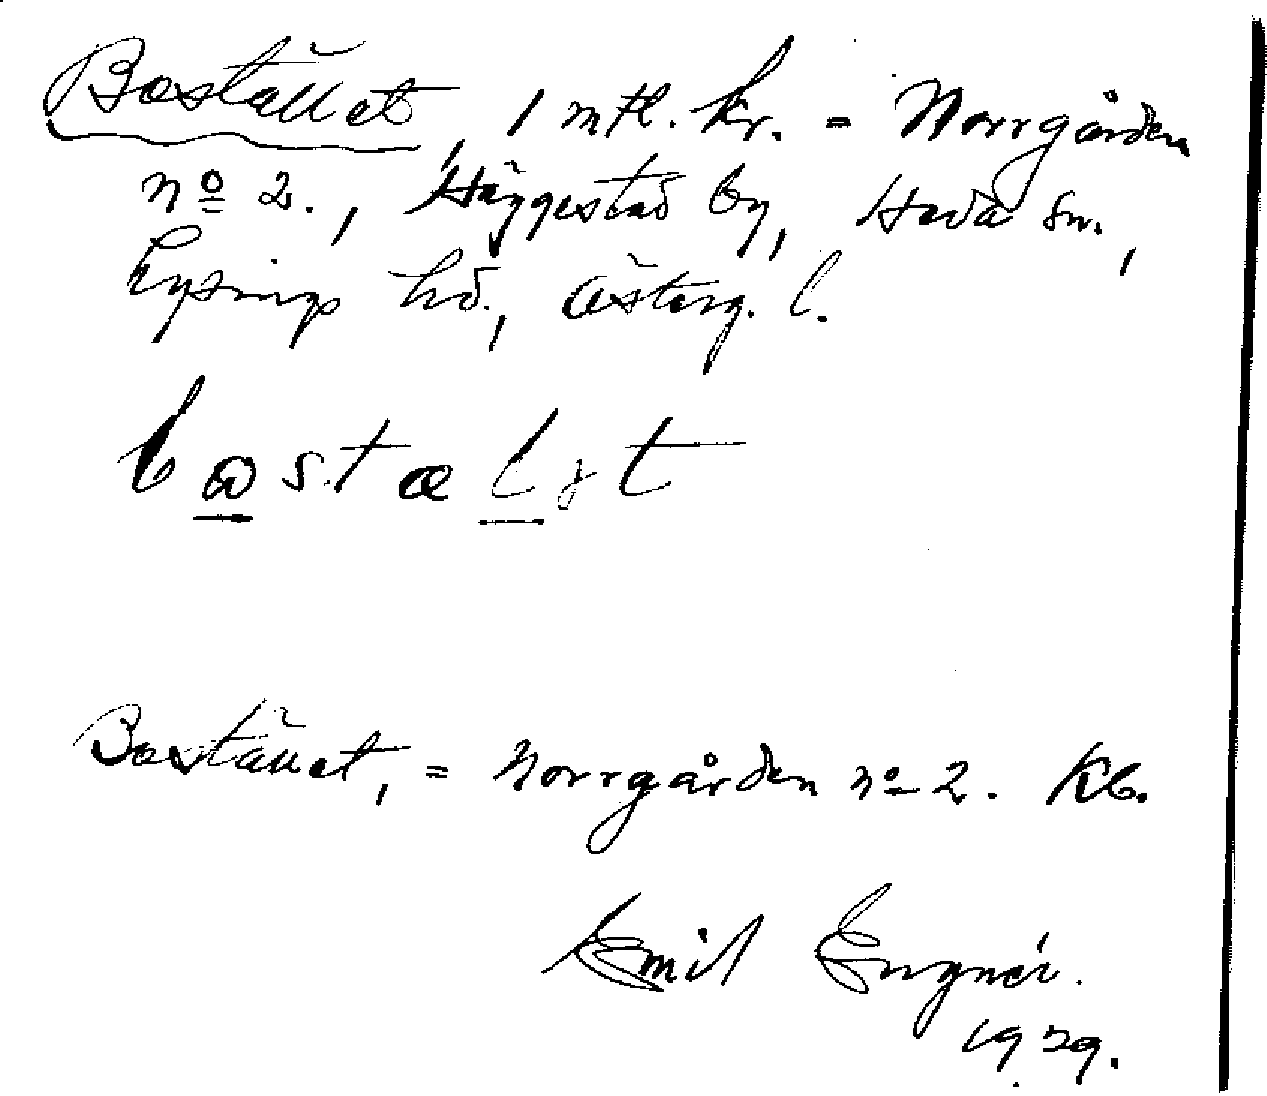 Bostället, 1 mtl. kr. = Norrgården
nº 2., Häggestad by, Heda sn.,
Lysings hd., Österg. l.
bɷstælət
Bostället, = Norrgården nº 2. Kb.
Emil Engnér.
1929.